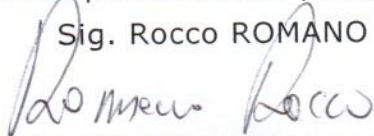 Sig. Rocco ROMANO
Romano Rocco